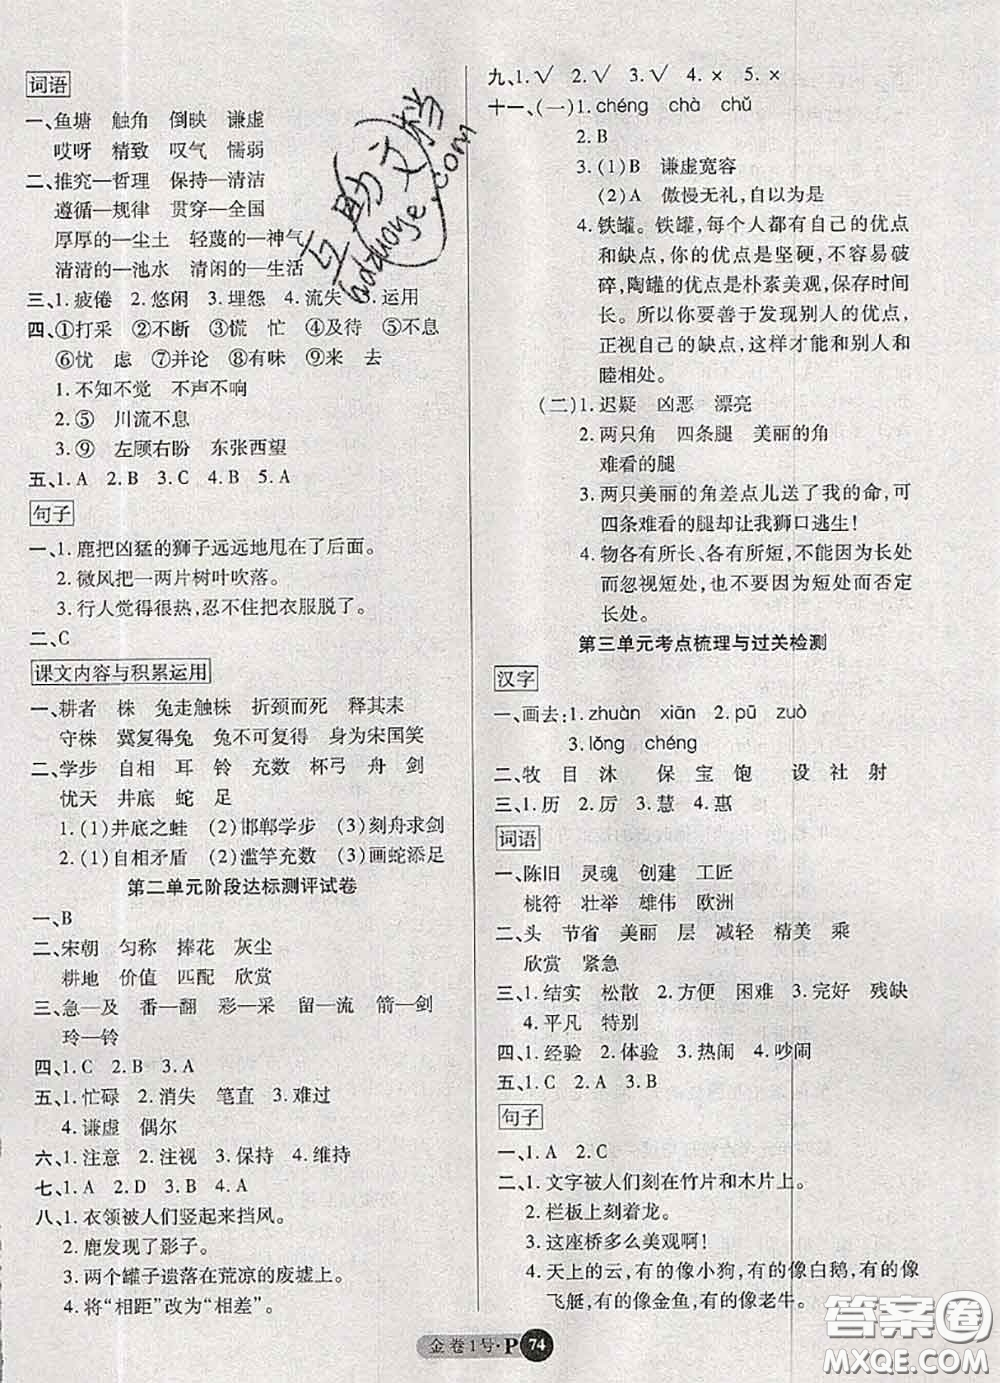 词语
一、鱼塘 触角 倒映 谦虚
哎呀 精致 叹气 懦弱
二、推究—哲理 保持—清洁
遵循—规律 贯穿—全国
厚厚的—尘土 轻蔑的—神气
清清的—池水 清闲的—生活
三、1.疲倦 2.悠闲 3.埋怨 4.流失 5.运用
四、①打采 ②不断 ③慌 忙 ④及待 ⑤不息
⑥忧 虑 ⑦并论 ⑧有味 ⑨来 去
1.不知不觉 不声不响
2.⑤ 川流不息
3.⑨ 左顾右盼 东张西望
五、1.A 2.B 3.C 4.B 5.A
句子
一、1.鹿把凶猛的狮子远远地甩在了后面。
2.微风把一两片树叶吹落。
3.行人觉得很热,忍不住把衣服脱了。
二、C
课文内容与积累运用
一、耕者 株 兔走触株 折颈而死 释其耒
守株 冀复得兔 兔不可复得 身为宋国笑
二、学步 自相 耳 铃 充数 杯弓 舟 剑
忧天 井底 蛇 足
1.(1)井底之蛙 (2)邯郸学步 (3)刻舟求剑
2.(1)自相矛盾 (2)滥竽充数 (3)画蛇添足
第二单元阶段达标测评试卷
一、B
二、宋朝 匀称 捧花 灰尘
耕地 价值 匹配 欣赏
三、急—及 番—翻 彩—采 留—流 箭—剑
玲—铃
四、1.C 2.B 3.A
五、1.忙碌 2.消失 笔直 3.难过
4.谦虚 偶尔
六、1.注意 2.注视 3.保持 4.维持
七、1.A 2.D 3.B 4.A
八、1.衣领被人们竖起来挡风。
2.鹿发现了影子。
3.两个罐子遗落在荒凉的废墟上。
4.将“相距”改为“相差”。
九、1.√ 2.√ 3.√ 4.× 5.×
十一、(一)1.chéng chà chǔ
2.B
3.(1)B 谦虚宽容
(2)A 傲慢无礼,自以为是
4.铁罐。铁罐,每个人都有自己的优点
和缺点,你的优点是坚硬,不容易破
碎,陶罐的优点是朴素美观,保存时间
长。所以你要善于发现别人的优点,
正视自己的缺点,这样才能和别人和
睦相处。
(二)1.迟疑 凶恶 漂亮
2.两只角 四条腿 美丽的角
难看的腿
3.两只美丽的角差点儿送了我的命,可
四条难看的腿却让我狮口逃生!
4.物各有所长、各有所短,不能因为长处
而忽视短处,也不能因为短处而否定
长处。
第三单元考点梳理与过关检测
汉字
一、画去:1.zhuàn xiān 2.pū zuò
3.lǒng chéng
二、牧 目 沐 保 宝 饱 设 社 射
三、1.历 2.厉 3.慧 4.惠
词语
一、陈旧 灵魂 创建 工匠
桃符 壮举 雄伟 欧洲
二、头 节省 美丽 层 减轻 精美 乘
欣赏 紧急
三、1.结实 松散 2.方便 困难 3.完好 残缺
4.平凡 特别
四、1.经验 2.体验 3.热闹 4.吵闹
五、1.C 2.A 3.B
句子
一、1.A 2.C
二、1.文字被人们刻在竹片和木片上。
2.栏板上刻着龙。
3.这座桥多么美观啊!
4.天上的云,有的像小狗,有的像白鹅,有的像
飞艇,有的像金鱼,有的像老牛。
金卷1号·P 74
答案圈
MXQE.COM